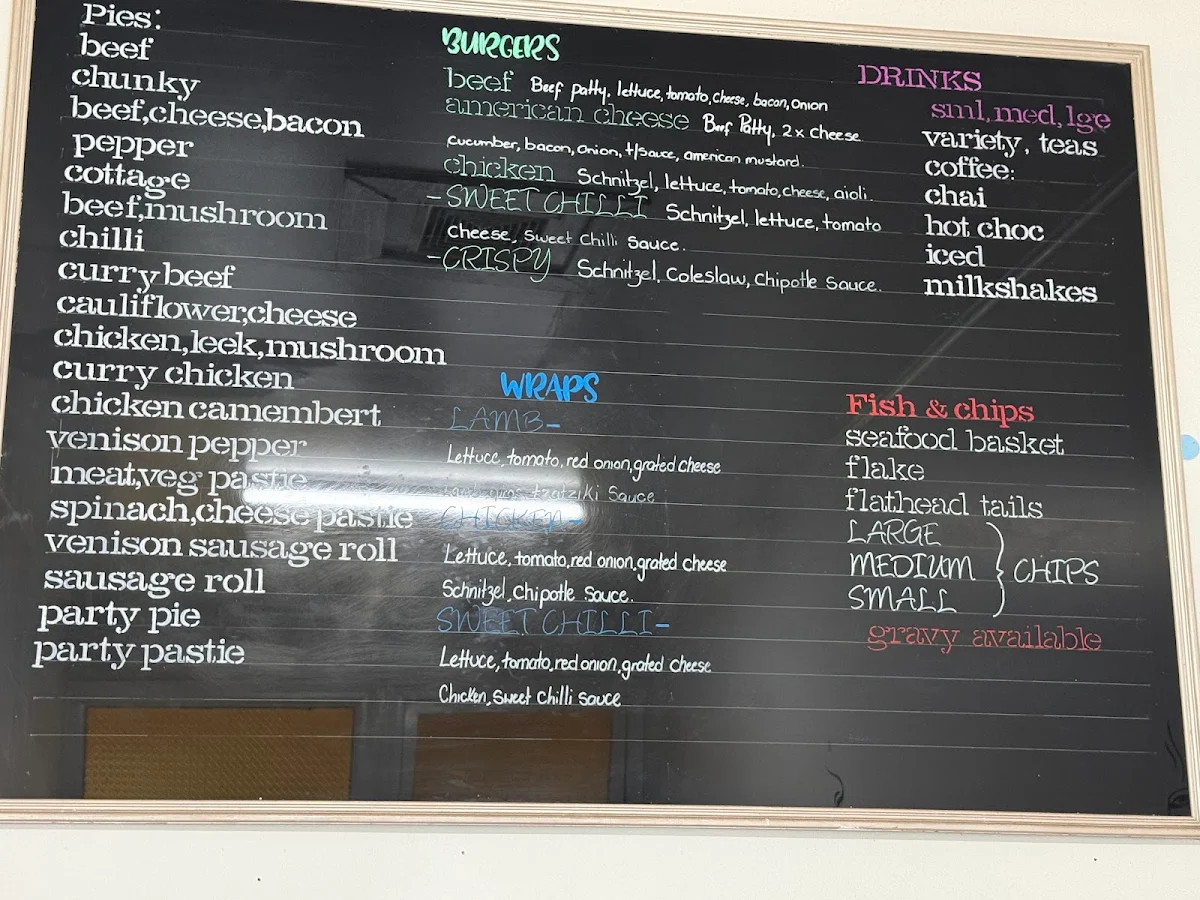 Pies:
beef
chunky
beef,cheese,bacon
pepper
cottage
beef,mushroom
chilli
curry beef
cauliflower,cheese
chicken,leek,mushroom
curry chicken
chicken camembert
venison pepper
meat,veg pastie
spinach,cheese pastie
venison sausage roll
sausage roll
party pie
party pastie
BURGERS
beef Beef patty, lettuce, tomato, cheese, bacon, onion
american cheese Beef Patty, 2x cheese
cucumber, bacon, onion, t/sauce, american mustard.
chicken Schnitzel, lettuce, tomato, cheese, aioli.
-SWEET CHILLI Schnitzel, lettuce, tomato
cheese, sweet chilli sauce.
-CRISPY Schnitzel, Coleslaw, Chipotle Sauce.
WRAPS
LAMB-
Lettuce, tomato, red onion, grated cheese
tzatziki Sauce
CHICKEN-
Lettuce, tomato, red onion, grated cheese
Schnitzel, Chipotle Sauce.
SWEET CHILLI-
Lettuce, tomato, red onion, grated cheese
Chicken, Sweet Chilli sauce
DRINKS
sml, med, lge
variety, teas
coffee:
chai
hot choc
iced
milkshakes
Fish & chips
seafood basket
flake
flathead tails
LARGE
MEDIUM } CHIPS
SMALL
gravy available